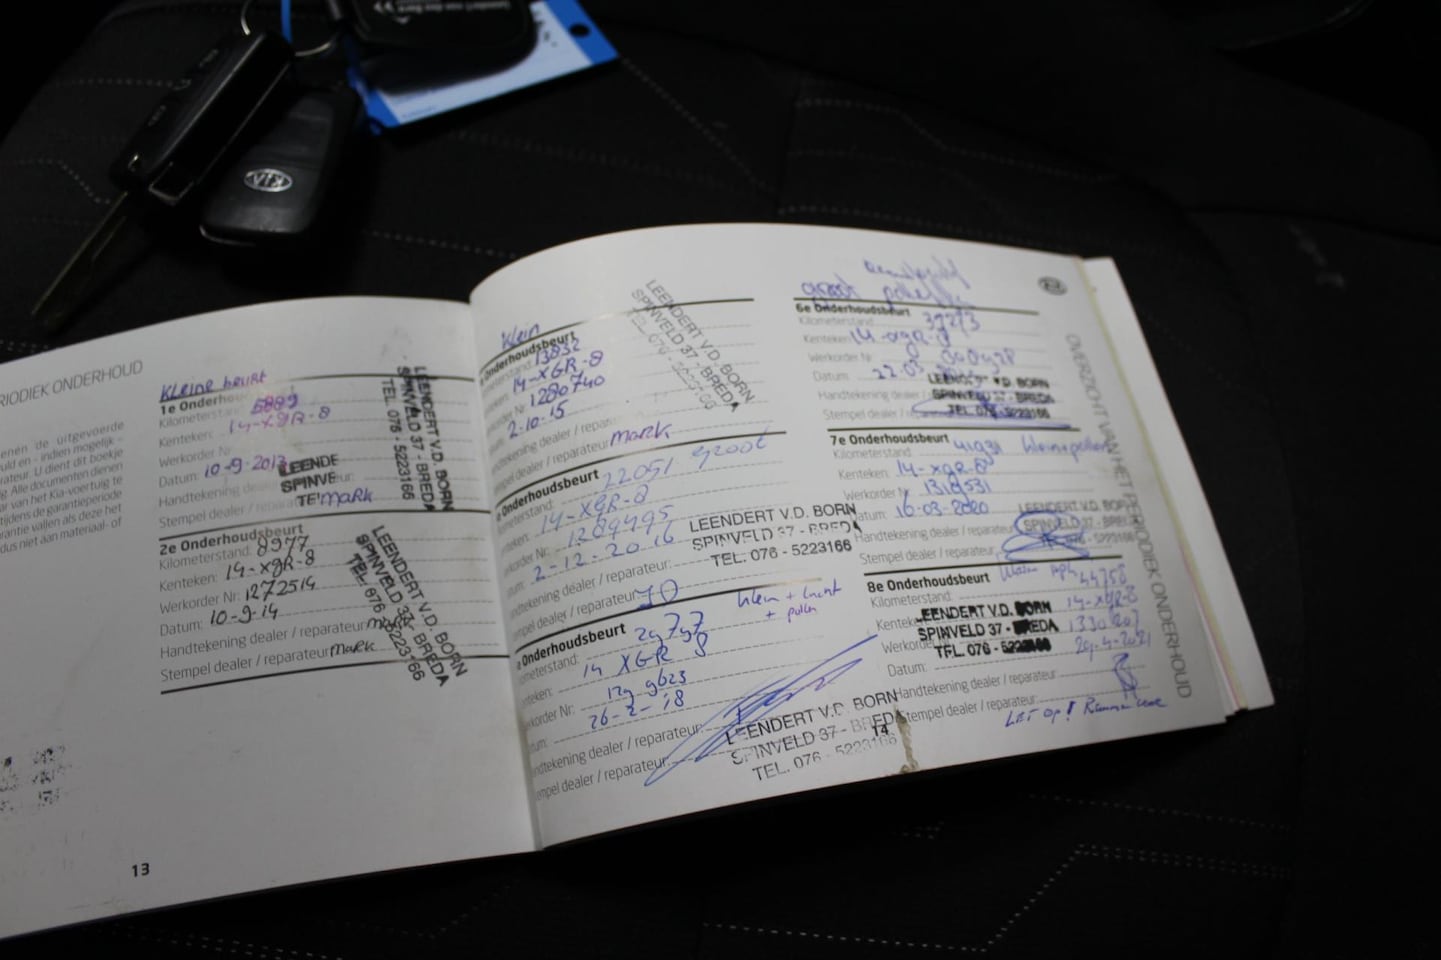 KIA
RIODIEK ONDERHOUD
enen de uitgevoerde
uld en - indien mogelijk -
rateur. U dient dit boekje
g. Alle documenten dienen
ar van het Kia-voertuig te
tijdens de garantieperiode
rantie vallen als deze het
dus niet aan materiaal- of
13
Kleine beurt
1e Onderhou
Kilometerstand: 5889
Kenteken: 14-XGR-8
Werkorder Nr
Datum: 10-9-2013
Handtekening dealer
Stempel dealer / reparateur: Mark
LEENDE
SPINVE
TE
LEENDERT V.D. BORN
SPINVELD 37 - BREDA
TEL. 076 - 5223166
2e Onderhoudsbeurt
Kilometerstand: 8977
Kenteken: 14-XGR-8
Werkorder Nr: 1272514
Datum: 10-9-14
Handtekening dealer / reparateur: Mark
Stempel dealer / reparateur: Mark
LEENDERT V.D. BORN
SPINVELD 37 - BREDA
TEL. 076 - 5223166
Klein
Onderhoudsbeurt
13832
14-XGR-8
Nr: 1280740
2-10-15
Mark
LEENDERT V.D. BORN
SPINVELD 37 - BREDA
TEL. 076 - 5223166
Onderhoudsbeurt
22051 groot
14-XGR-8
1289495
2-12-2016
ndtekening dealer / reparateur:
mpel dealer / reparateur:
LEENDERT V.D. BORN
SPINVELD 37 - BREDA
TEL. 076 - 5223166
Klein + lucht
+ pollen
Onderhoudsbeurt
ometerstand: 29797
nteken: 14 XGR 8
rkorder Nr: 1299623
tum: 26-2-18
ndtekening dealer / reparateur:
empel dealer / reparateur:
LEENDERT V.D. BORN
SPINVELD 37 - BREDA
TEL. 076 - 5223166
14
groot pollen
6e Onderhoudsbeurt
Kilometerstand: 37273
Kenteken: 14-XGR-8
Werkorder Nr
Datum: 22-03
Handtekening dealer
Stempel dealer / repara
LEENDERT V.D. BORN
SPINVELD 37 - BREDA
TEL. 076 - 5223166
7e Onderhoudsbeurt
Kilometerstand: 41931 klein+pollen
Kenteken: 14-XGR-8
Werkorder Nr: 1319531
Datum: 16-03-2020
Handtekening dealer / reparateur:
Stempel dealer / reparateur:
LEENDERT V.D. BORN
SPINVELD 37 - BREDA
TEL. 076 - 5223166
8e Onderhoudsbeurt
Kilometerstand: 44758
Kenteken 14-XGR-8
Werkorder
Datum:
Handtekening dealer / reparateur:
Stempel dealer / reparateur:
LEENDERT V.D. BORN
SPINVELD 37 - BREDA
TEL. 076 -
LET OP!
OVERZICHT VAN HET PERIODIEK ONDERHOUD